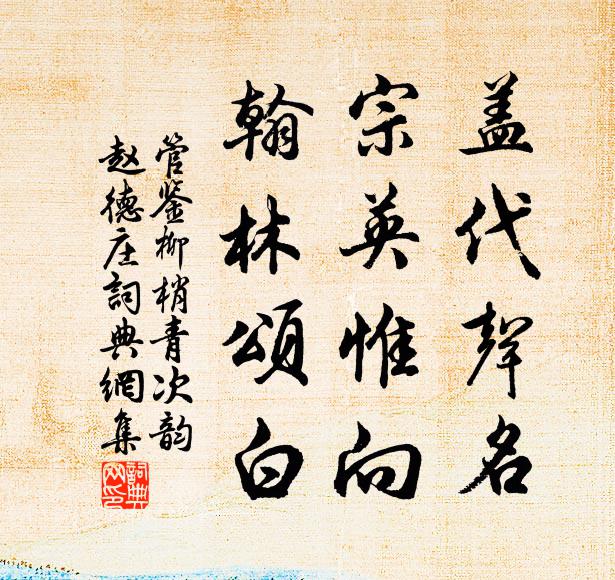 盖代聲名
宗英惟向
翰林頌白
管鉴柳梢青次韵
赵德庄詞典網集
詞典网印